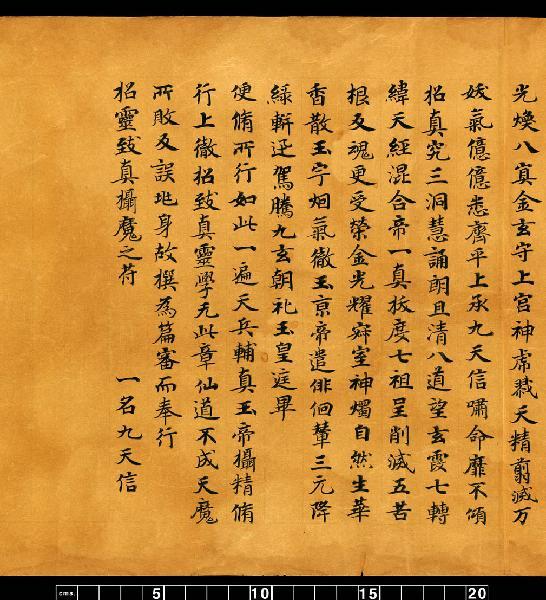 光煥八寘金玄守上宮神虎戮天精翦滅万
妖氣億億悉齊平上承九天信嘯命靡不傾
招真究三洞慧誦朗且清八道望玄霞七轉
緯天經混合帝一真拔度七祖呈削滅五苦
根反魂更受榮金光耀寂室神燭自然生華
香散玉宇烟氣徹玉京帝遣徘徊輦三元降
綠軿逕駕騰九玄朝礼玉皇庭畢
便脩所行如此一遍天兵輔真玉帝攝精脩
行上徹招致真靈學无此章仙道不成天魔
所敗反誤兆身故撰為篇審而奉行
招靈致真攝魔之符　一名九天信
cms. 5 10 15 20